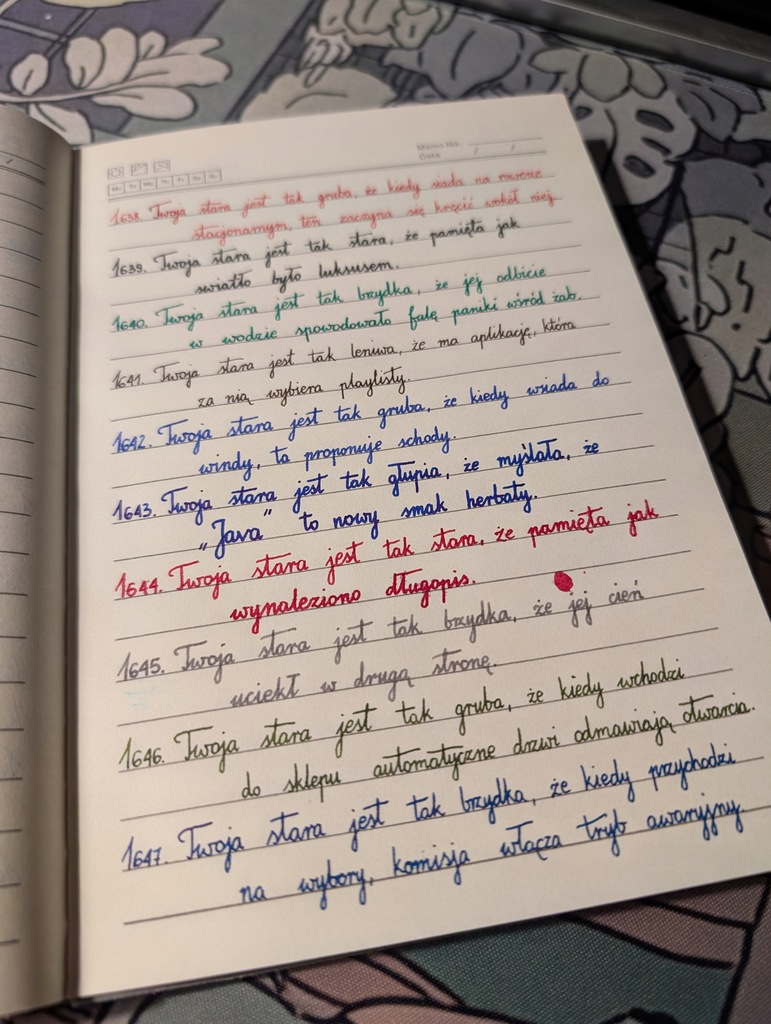 Memo No.
Date / /
Mo Tu We Th Fr Sa Su
1638. Twoja stara jest tak gruba, że kiedy siada na rowerze
stacjonarnym, ten zaczyna się kręcić wokół niej.
1639. Twoja stara jest tak stara, że pamięta jak
światło było luksusem.
1640. Twoja stara jest tak brzydka, że jej odbicie
w wodzie spowodowało falę paniki wśród żab.
1641. Twoja stara jest tak leniwa, że ma aplikację, która
za nią wybiera playlisty.
1642. Twoja stara jest tak gruba, że kiedy wsiada do
windy, ta proponuje schody.
1643. Twoja stara jest tak głupia, że myślała, że
„Java" to nowy smak herbaty.
1644. Twoja stara jest tak stara, że pamięta jak
wynaleziono długopis.
1645. Twoja stara jest tak brzydka, że jej cień
uciekł w drugą stronę.
1646. Twoja stara jest tak gruba, że kiedy wchodzi
do sklepu automatyczne drzwi odmawiają otwarcia.
1647. Twoja stara jest tak brzydka, że kiedy przychodzi
na wybory, komisja włącza tryb awaryjny.